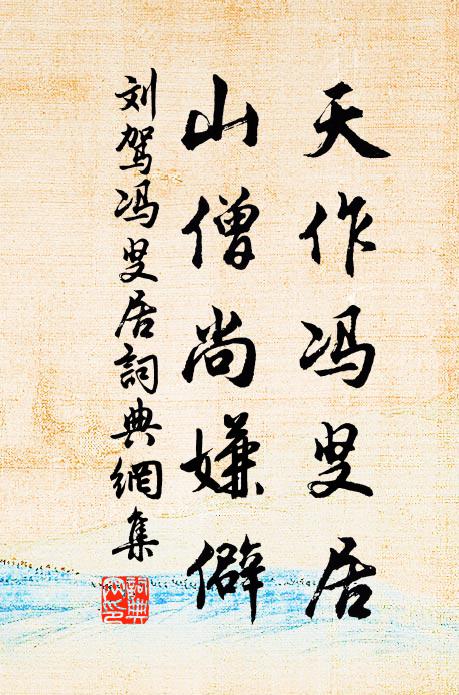 天作冯叟居
山僧尚嫌僻
刘驾冯叟居詞典網集